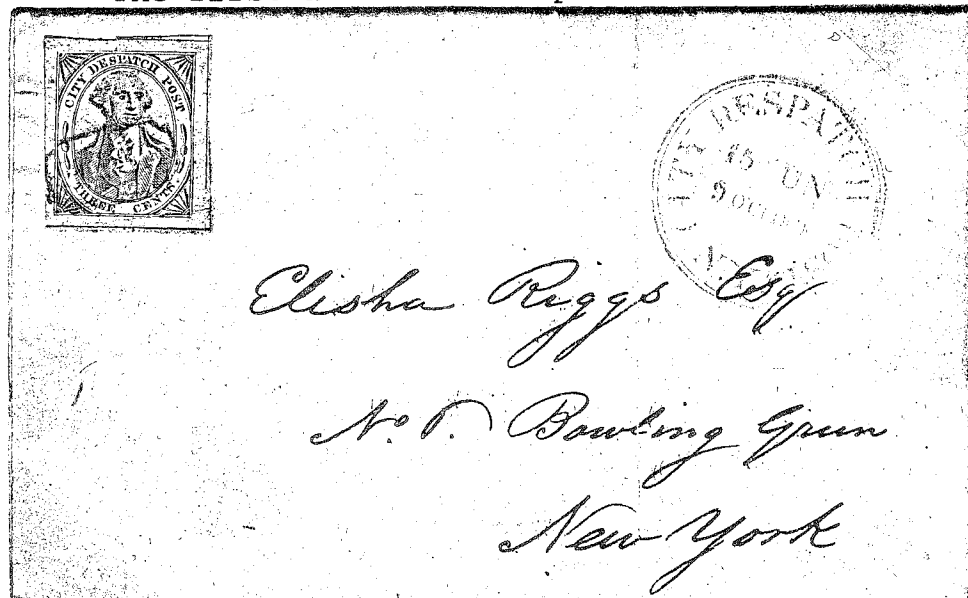 CITY DESPATCH POST
THREE CENTS.
CITY DESPATCH
15 UN
Elisha Riggs Esq
No. Bowling Green
New York